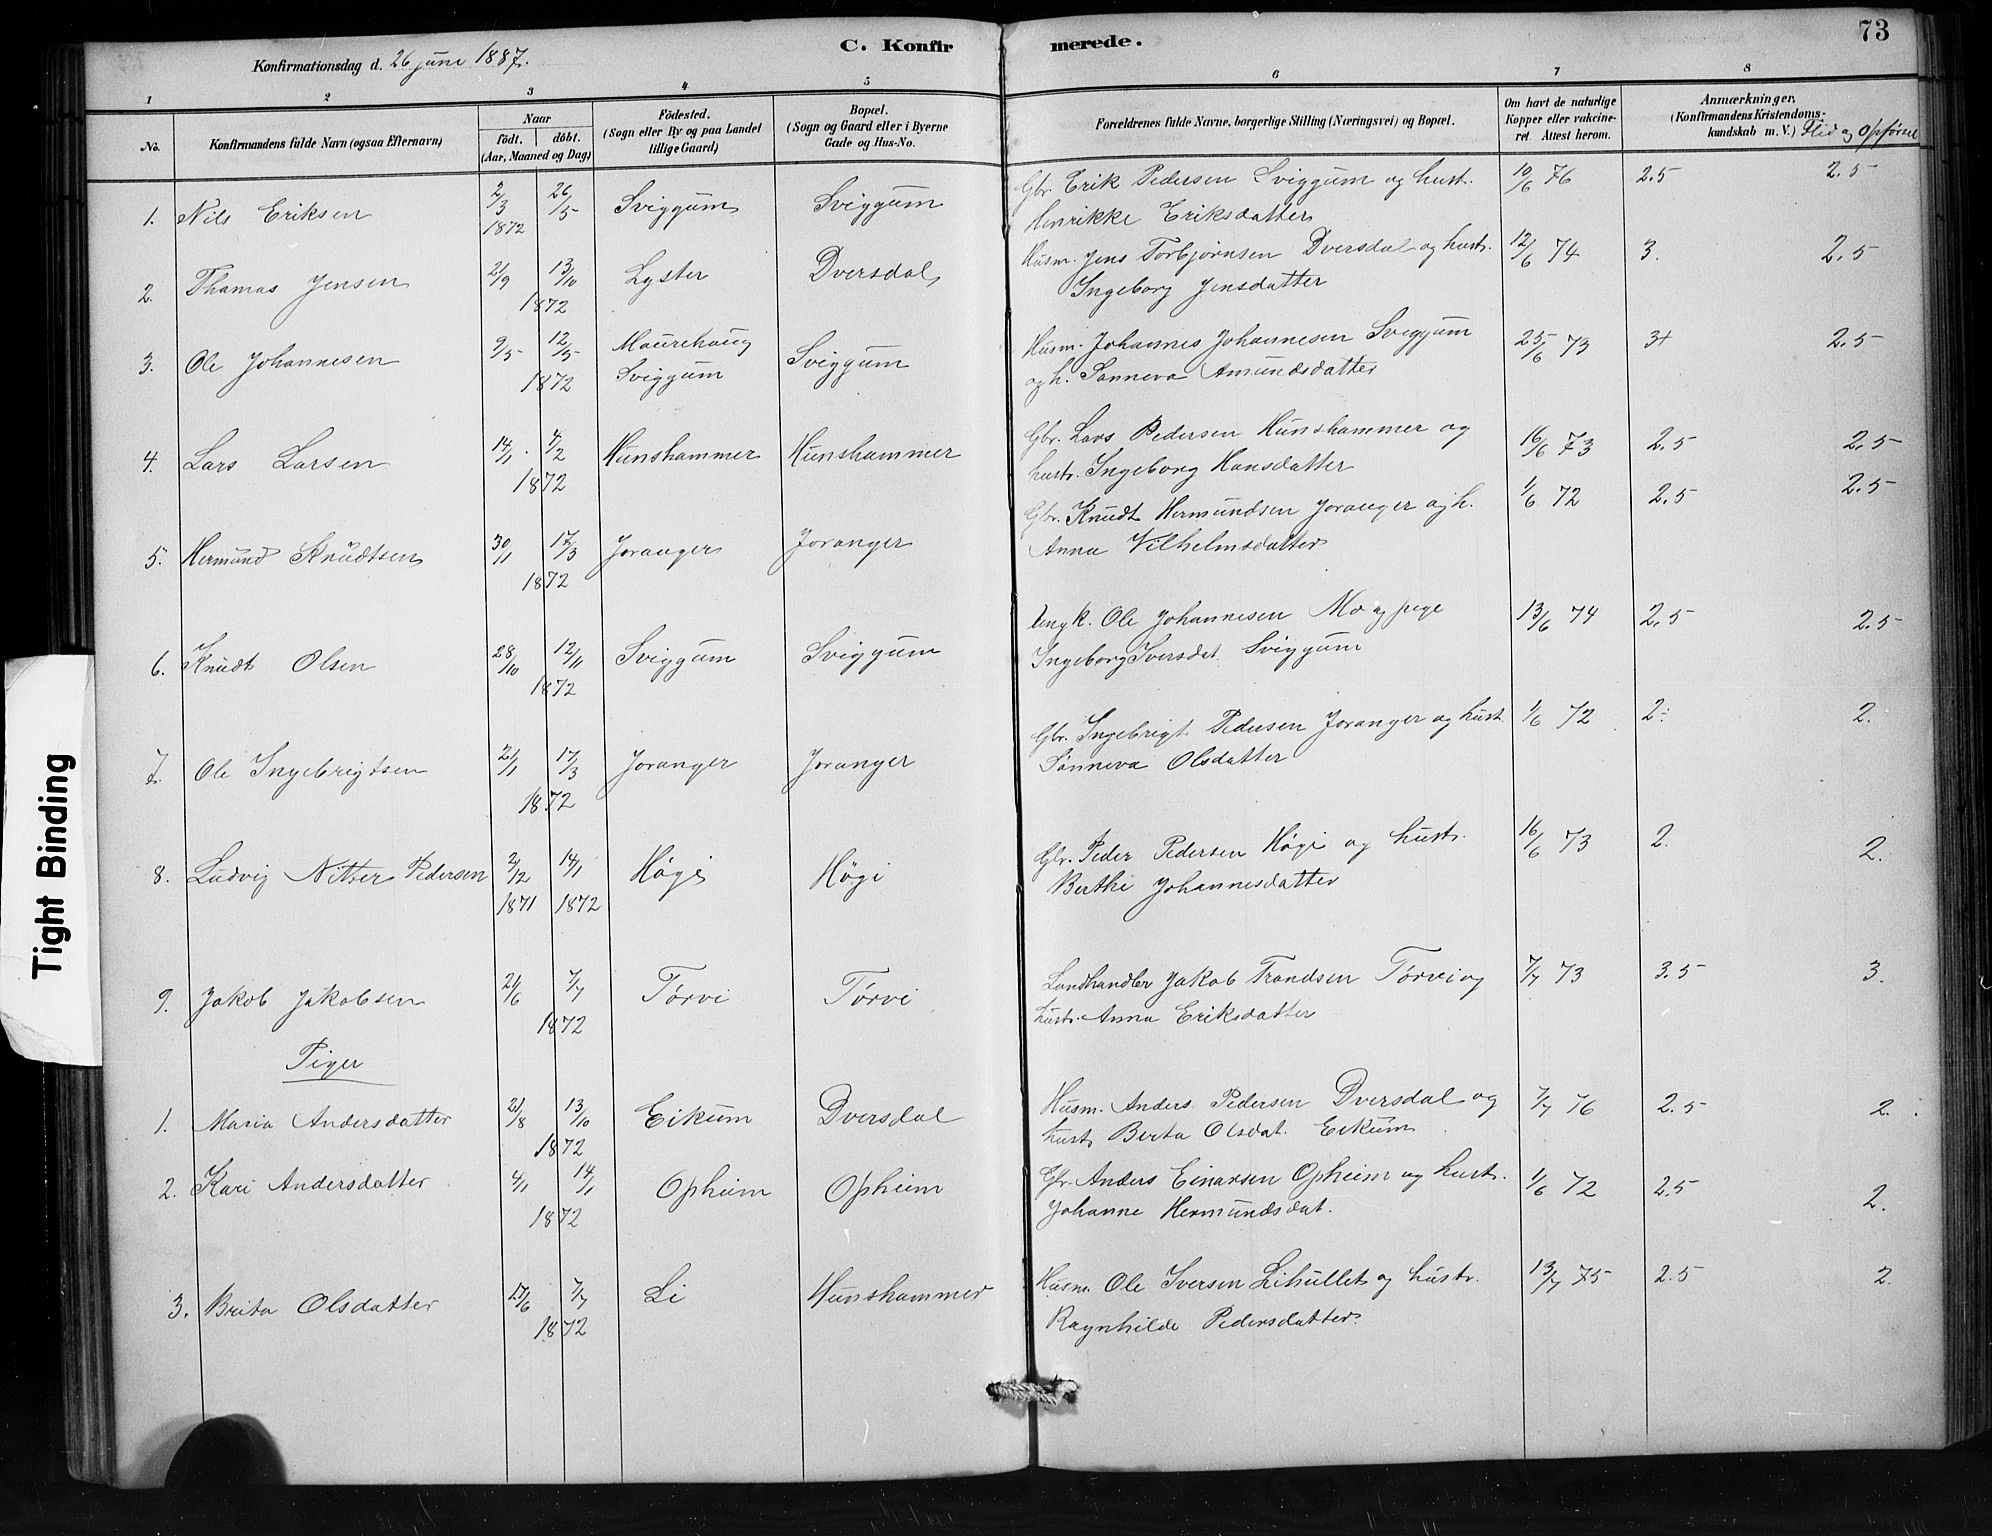 73
C. Konfirmerede.
Konfirmationsdag d. 26 juni 1887.
1 2 3 4 5 6 7 8
No.
Konfirmandens fulde Navn (ogsaa Efternavn)
Naar
födt. döbt.
(Aar, Maaned og Dag)
Födested.
(Sogn eller By og paa Landet
tillige Gaard)
Bopæl.
(Sogn og Gaard eller i Byerne
Gade og Hus-No.
Forældrenes fulde Navne, borgerlige Stilling (Næringsvei) og Bopæl.
Om havt de naturlige
Kopper eller vakcine-
ret Attest herom.
Anmærkninger.
(Konfirmandens Kristendoms-
kundskab m. V.) Flid og Opførsel
1. Nils Eriksen 2/3 1872 26/5 Sviggum Sviggum Gbr. Erik Pedersen Sviggum og hust. 10/6 76 2.5 2.5
Henrikke Eriksdatter
2. Thomas Jensen 21/9 13/10 1872 Lyster Dversdal Husm. Jens Torbjørnsen Dversdal og hustr. 12/6 74 3. 2.5
Ingeborg Jensdatter
3. Ole Johannesen 9/5 12/5 1872 Maurehaug Sviggum Sviggum Husm. Johannes Johannesen Sviggum 25/6 73 3+ 2.5
og h. Sønneva Amundsdatter
4. Lars Larsen 14/1 4/2 1872 Hunshammer Hunshammer Gbr. Lars Pedersen Hunshammer og 16/6 73 2.5 2.5
hustr. Ingeborg Hansdatter
5. Hermund Knudtsen 30/11 17/3 1872 Joranger Joranger Gbr. Knudt Hermundsen Joranger og h. 1/6 72 2.5 2.5
Anna Vilhelmsdatter
6. Knudt Olsen 28/10 12/11 1872 Sviggum Sviggum Ungk. Ole Johannesen Mo og pige 13/6 74 2.5 2.5
Ingeborg Iversdat. Sviggum
7. Ole Ingebrigtsen 21/1 17/3 1872 Joranger Joranger Gbr. Ingebrigt Pedersen Joranger og hust. 1/6 72 2. 2.
Sønneva Olsdatter
8. Ludvig Nitter Pedersen 2/12 1871 14/1 1872 Høgi Høgi Gbr. Peder Pedersen Høgi og hustr. 16/6 73 2. 2.
Berthe Johannesdatter
9. Jakob Jakobsen 21/6 7/7 1872 Tørvi Tørvi Landhandler Jakob Trondsen Tørvi og 7/7 73 3.5 3.
hustr. Anna Eriksdatter
Piger
1. Maria Andersdatter 21/8 13/10 1872 Eikum Dversdal Husm. Anders Pedersen Dversdal og 7/7 76 2.5 2.
hustr. Berta Olsdat. Eikum
2. Kari Andersdatter 4/1 14/1 1872 Opheim Opheim Gbr. Anders Einarsen Opheim og hust. 1/6 72 2.5 2.
Johanne Hermundsdat.
3. Brita Olsdatter 17/6 7/7 1872 Li Hunshammer Husm. Ole Iversen Lihullet og hustr. 13/7 75 2.5 2.
Ragnhilde Pedersdatter.
Tight Binding